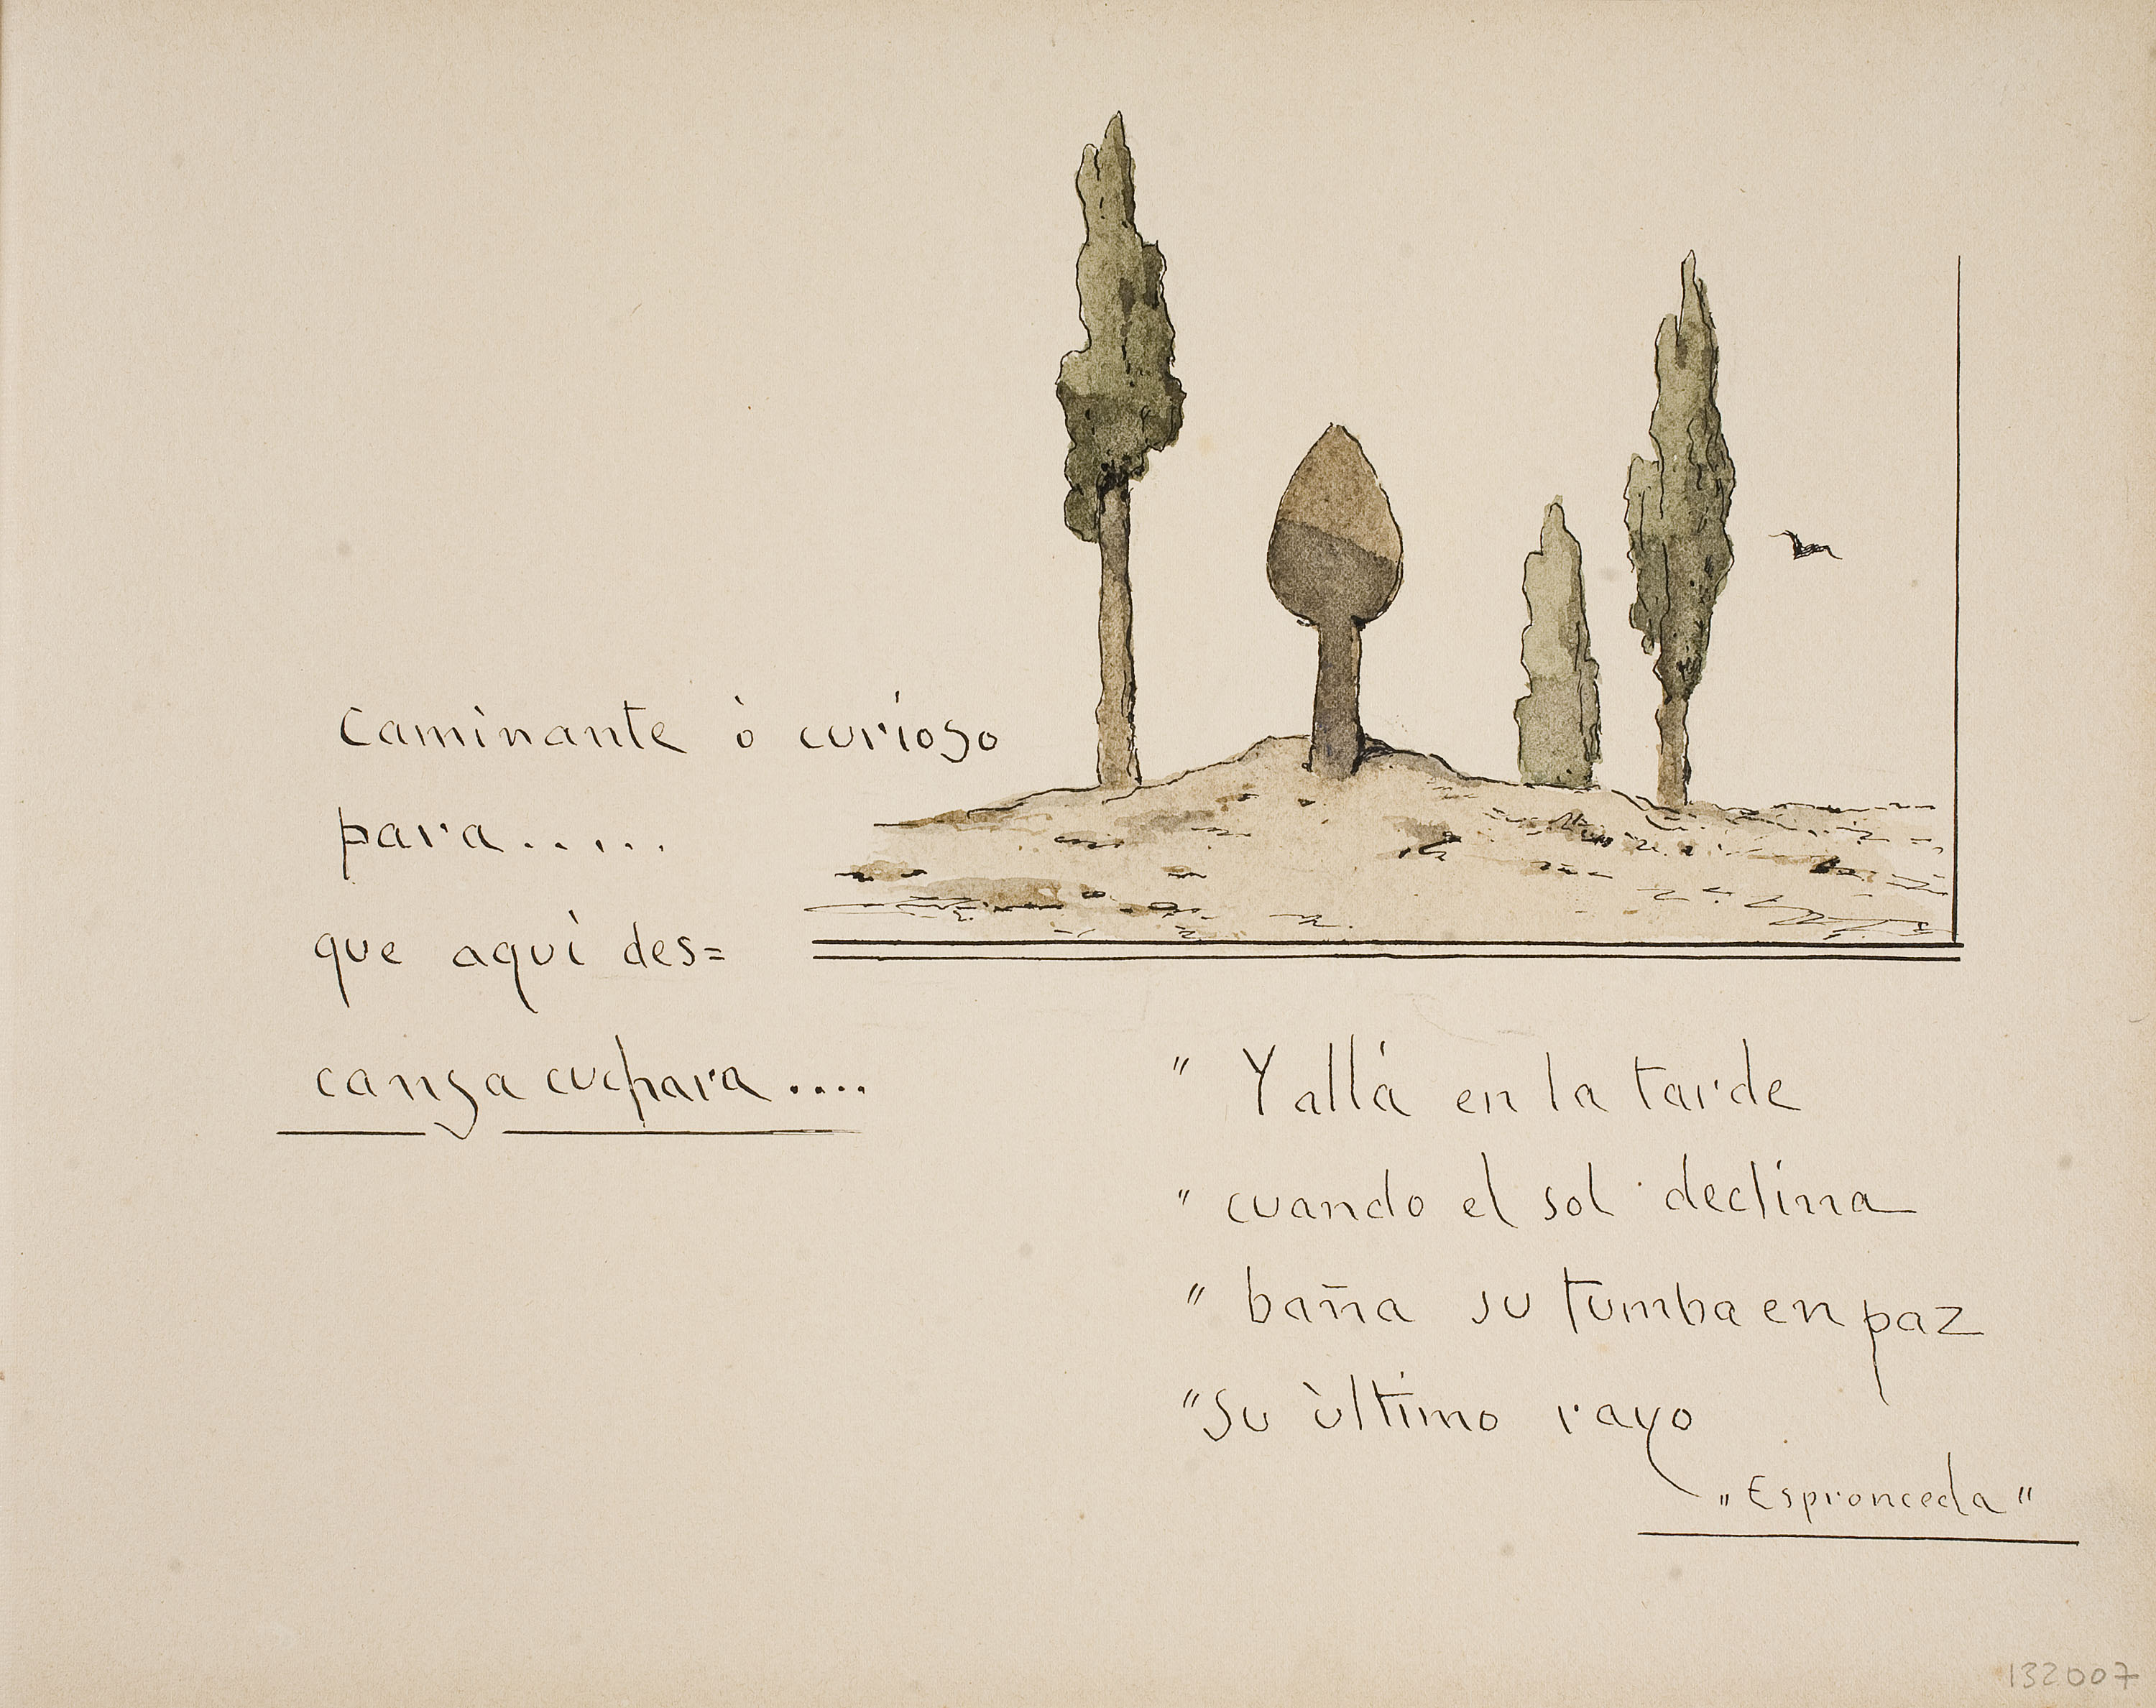 Caminante ò curioso
para.....
que aquì des=
cansa cuchara....
" Y allá en la tarde
" cuando el sol declina
" baña su tumba en paz
" Su ùltimo rayo
"Espronceda"
132007